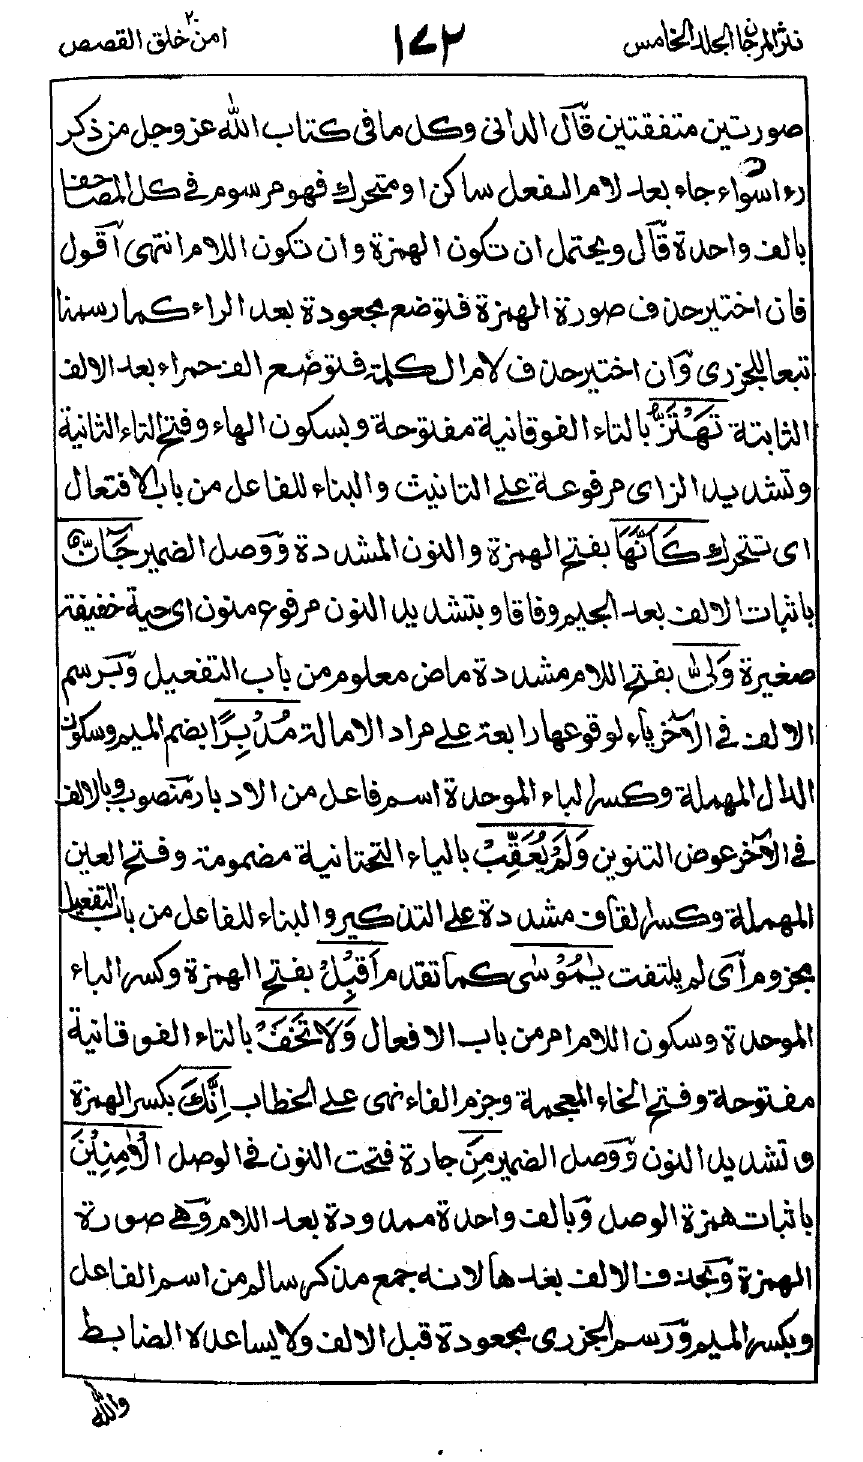 نثر المرجان الجلد الخامس
١٧٢
امن خلق ٢٠ القصص
صورتين متفقتين قال الدانى وكل ما فى كتاب الله عز وجل من ذكر
رءا سواء جاء بعد لام الفعل ساكن او متحرك فهو مرسوم فى كل المصاحف
بالف واحدة قال ويحتمل ان تكون الهمزة وان تكون اللام انتهى اقول
فان اختير حذف صورة الهمزة فلتوضع مجعودة بعد الراء كما رسمنا
تبعا للجزرى وان اختير حذف لام الكلمة فلتوضع الف حمراء بعد الالف
الثابتة تَهْتَزُّ بالتاء الفوقانية مفتوحة وبسكون الهاء وفتح التاء الثانية
وتشديد الزاى مرفوعة على التانيث والبناء للفاعل من باب الافتعال
اى تتحرك كَأَنَّهَا بفتح الهمزة والنون المشددة ووصل الضمير جَآنٌّ
باثبات الالف بعد الجيم وفاقا وبتشديد النون مرفوع منون اى حية خفيفة
صغيرة وَلّٰى بفتح اللام مشددة ماض معلوم من باب التفعيل وبرسم
الالف فى الآخر ياء لوقوعها رابعة على مراد الامالة مُدْبِرًا بضم الميم وسكون
الدال المهملة وكسر الباء الموحدة اسم فاعل من الادبار منصوب وبالالف
فى الآخر عوض التنوين وَلَمْ يُعَقِّبْ بالياء التحتانية مضمومة وفتح العين
المهملة وكسر القاف مشددة على التذكير والبناء للفاعل من باب التفعيل
مجزوم اى لم يلتفت يٰمُوْسٰى كما تقدم اَقْبِلْ بفتح الهمزة وكسر الباء
الموحدة وسكون اللام امر من باب الافعال وَلَا تَخَفْ بالتاء الفوقانية
مفتوحة وفتح الخاء المعجمة وجزم الفاء نهى على الخطاب اِنَّكَ بكسر الهمزة
وتشديد النون ووصل الضمير مِنَ جارة فتحت النون فى الوصل الْاٰمِنِيْنَ
باثبات همزة الوصل وبالف واحدة ممدودة بعد اللام وهى صورة
الهمزة وبحذف الالف بعدها لانه جمع مذكر سالم من اسم الفاعل
وبكسر الميم ورسم الجزرى مجعودة قبل الالف ولا يساعده الضابط
والله